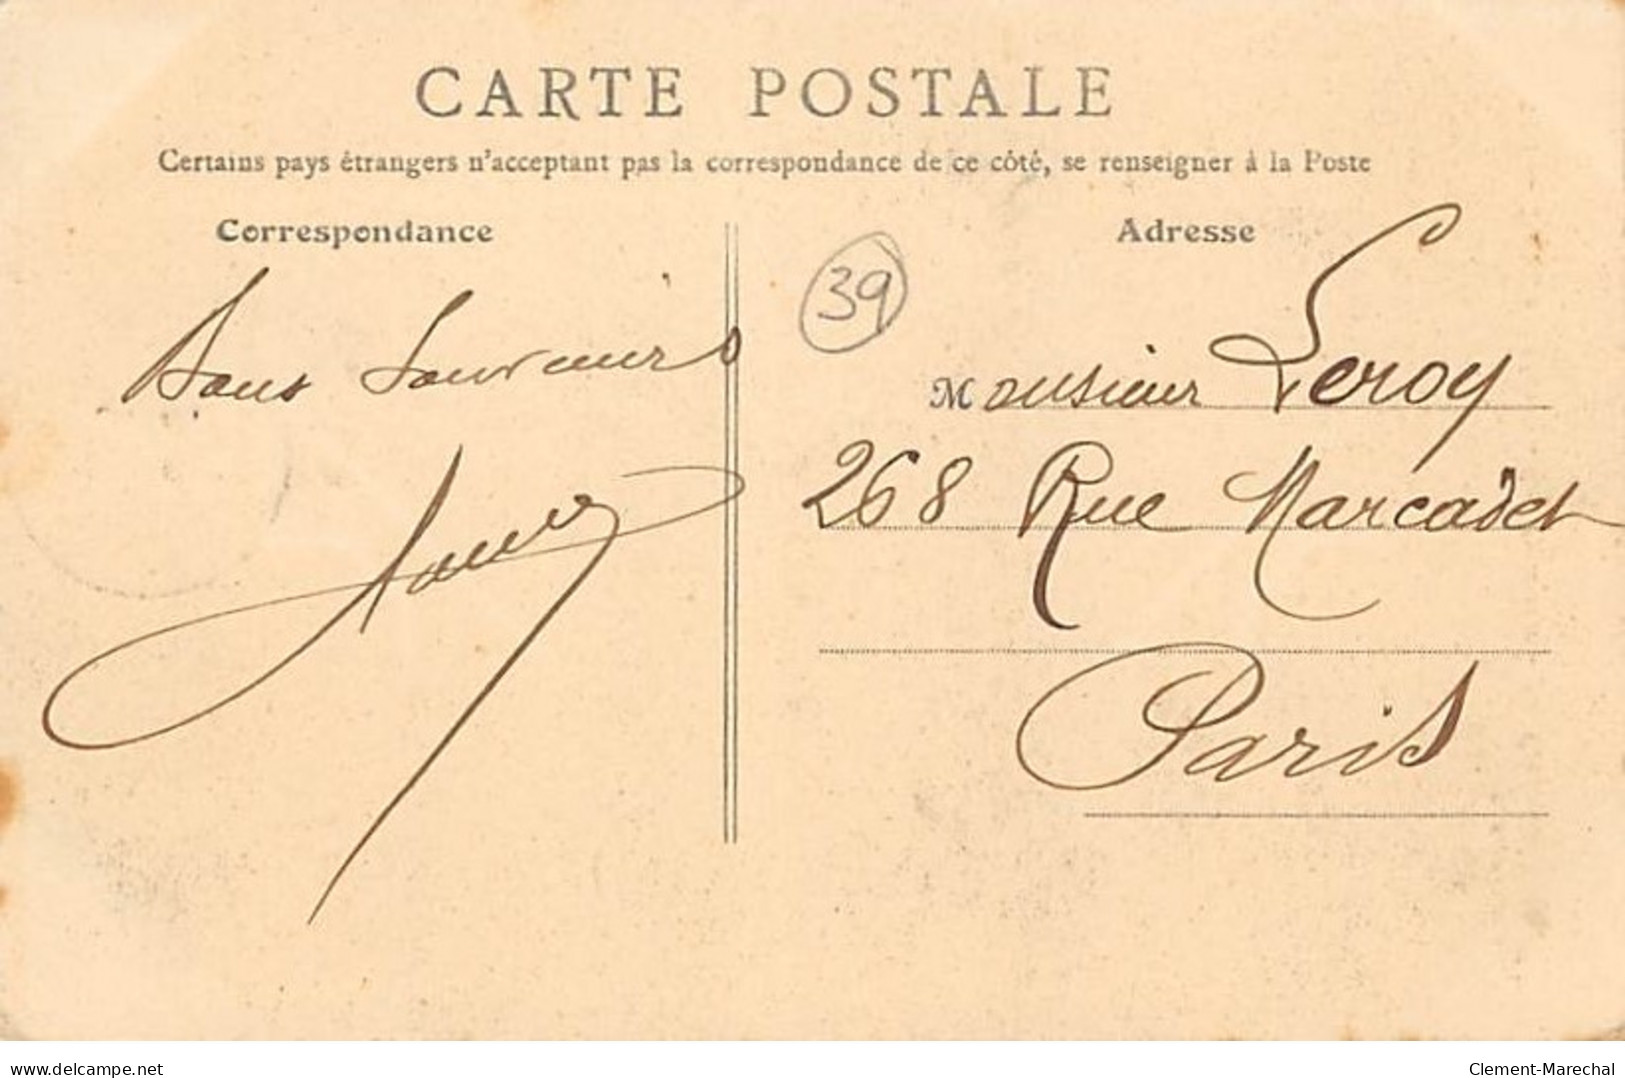 CARTE POSTALE
Certains pays étrangers n'acceptant pas la correspondance de ce côté, se renseigner à la Poste
Correspondance
Adresse
39
Bons Souvenirs
Monsieur Leroy
268 Rue Marcadet
Paris
delcampe.net
Clement-Marechal